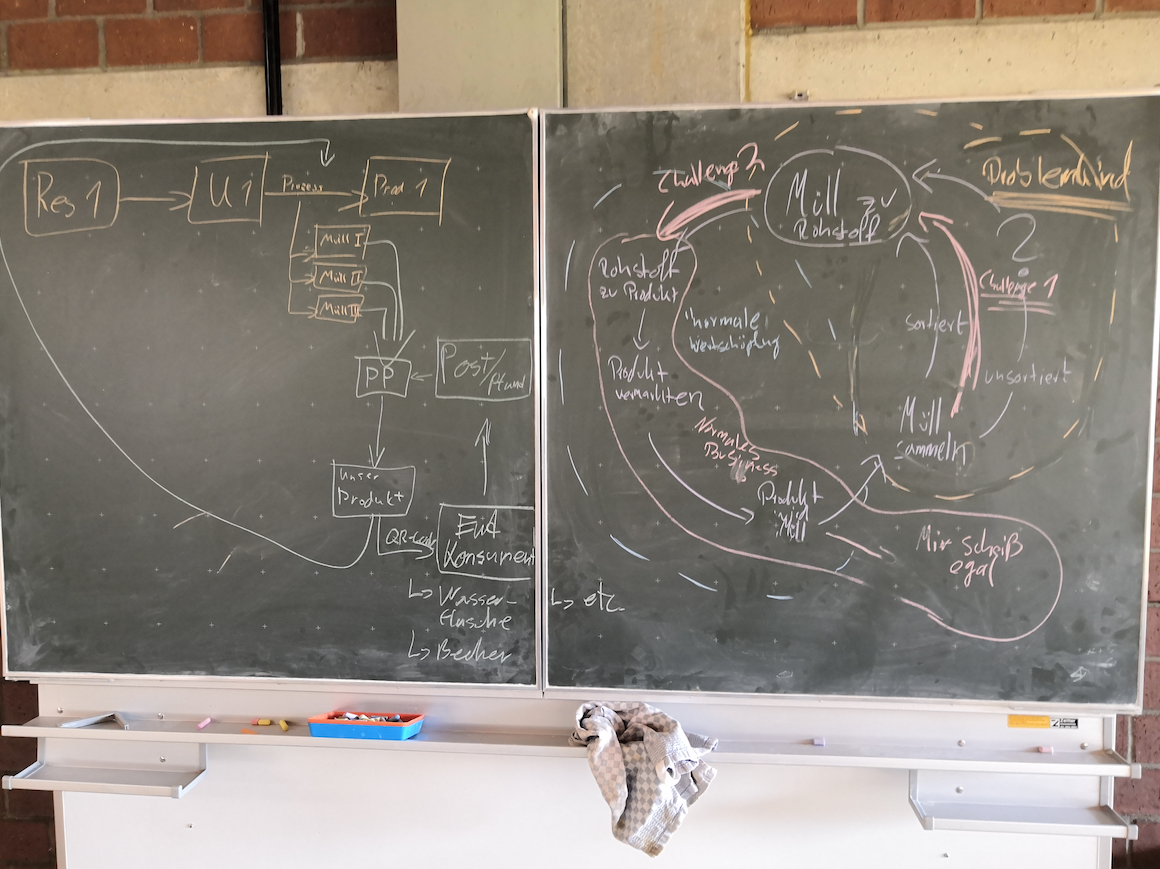 Res 1
U1
Prozess
Prod 1
Müll I
Müll II
Müll III
PP
Post/
Pfand
Unser
Produkt
QR-Code
End
Konsument
↳ Wasser-
flasche
↳ Becher
↳ etc.
Challenge 2
Müll zu
Rohstoff
Problemkind
2
Challenge 1
Rohstoff
zu Produkt
normale
Wertschöpfung
sortiert
unsortiert
Produkt
vermarkten
Müll
sammeln
Normales
Business
Produkt
wird
Müll
Mir Scheiß
egal